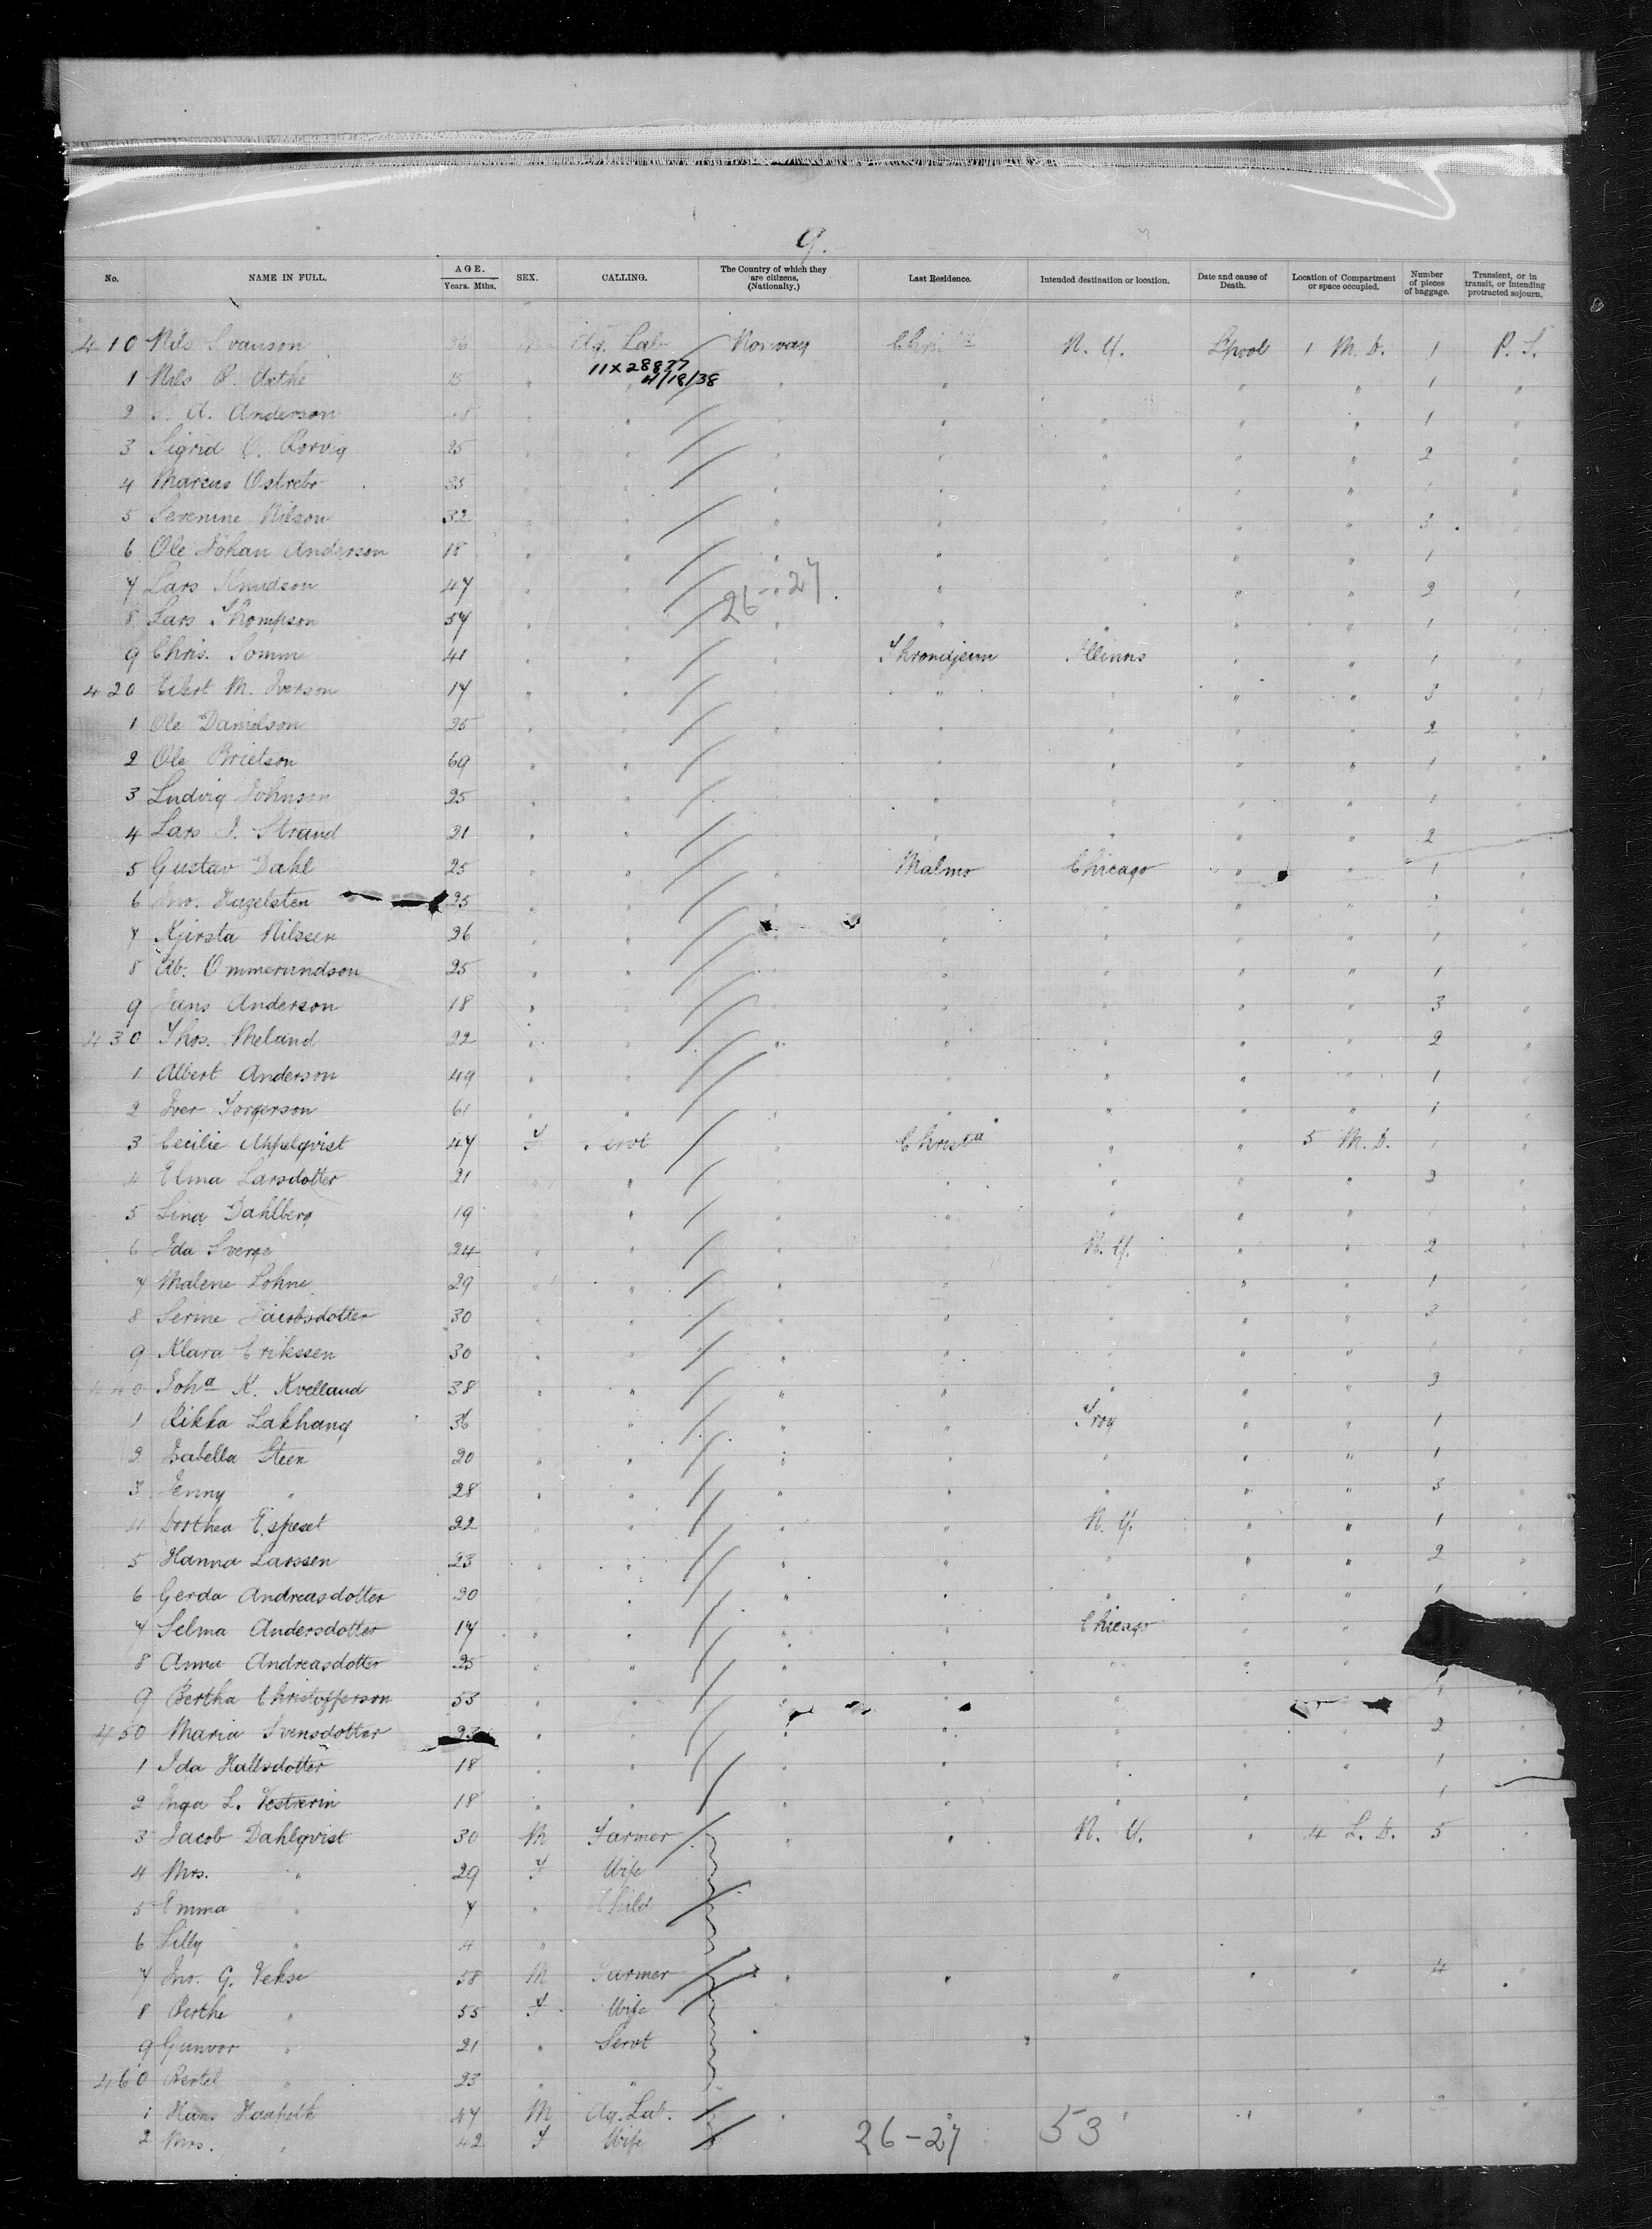 9.
No. NAME IN FULL. AGE. Years. Mths. SEX. CALLING. The Country of which they are citizens. (Nationalty.) Last Residence. Intended destination or location. Date and cause of Death. Location of Compartment or space occupied. Number of pieces of baggage. Transient, or in transit, or intending protracted sojourn.
410 Nils Svanson 36 Ag. Lab Norway N. Y. Lpool 1 M. D. 1 P. S.
11x28877
4/18/38
1 Nils " " " " " 1 "
2 A. Anderson " " " " " " 1 "
3 Sigrid Rorvig 25 " " " " " " " 2 "
4 Marcus Ostrebo 35 " " " " " " " "
5 Severine Nilson 32 " " " " " " 3
6 Ole Johan Anderson 18 " " " " " " " 1
7 Lars Knudson 47 " " " " " " 2 "
26-27.
8 Lars Thompson 57 " " " " " " 1 "
9 Chris. Somme 41 " " " Throndjeim Illinns " " 1 "
420 Eibert M. Iverson 17 " " " " " " 3 "
1 Ole Danielson 25 " " " " " " " 2 "
2 Ole Brictson 69 " " " " " " 1 "
3 Ludvig Johnson 25 " " " " " " 1 "
4 Lars J. Strand 21 " " " " " " 2
5 Gustav Dahl 25 " " " Malmo Chicago " " 1 "
6 Jno. Hazelsten 25 " " " " " "
7 Kjersta Nilssen 26 " " " " " " 1 "
8 Ab. Ommerundson 25 " " " " " " 1
9 Jans Anderson 18 " " " " " " 3 "
430 Thos. Meland 22 " " " " " " " 2 "
1 Albert Anderson 49 " " " " " " 1
2 Iver Torgerson 61 " " " " " " " 1 "
3 Cecilie Appelqvist 47 F Servt " Christa " " 5 M. D. "
4 Elma Larsdotter 21 " " " " " " 2 "
5 Lina Dahlberg 19 " " " " " " " "
6 Ida Sverge 24 " " " N. Y. " " 2 "
7 Malene Lohne 29 " " " " " " 1 "
8 Serine Jacobsdotter 30 " " " " " " " 3 "
9 Klara Eriksen 30 " " " " " " "
440 Joha K. Kvelland 38 " " " " " " " 2
1 Rikka Lakhang 36 " " " " Troy " " 1 "
2 Isabella Steen 20 " " " " " " " 1
3 Jenny " 28 " " " " " " " 3 "
4 Dorthea Espeset 22 " " " " N. Y. " " 1 "
5 Hanna Larssen 23 " " " " " " " 2 "
6 Gerda Andreasdotter 20 " " " " " " " 1
7 Selma Andersdotter 17 " " " " Chicago " "
8 Anna Andreasdotter 25 " " " " " " "
9 Bertha Christofferson 53 " " " " "
450 Maria Svensdotter 23 " " " " " 2 "
1 Ida Hallsdotter 18 " " " " " " " 1 "
2 Inga L. Vestrerin 18 " " " " " " 1
3 Jacob Dahlqvist 30 M Farmer " " N. Y. " 4 L. D. 5 "
4 Mrs. " 29 F Wife
5 Emma " 7 " Child
6 Lilly " 4 "
7 Jno. G. Vekse 58 M Farmer " " " " " 4 "
8 Berthe " 55 F Wife
9 Gunvor " 21 " Servt
460 Bertel " 23 " "
1 Hans 47 M Ag. Lab. " " " " " "
2 Mrs. " 42 F Wife
26-27 53